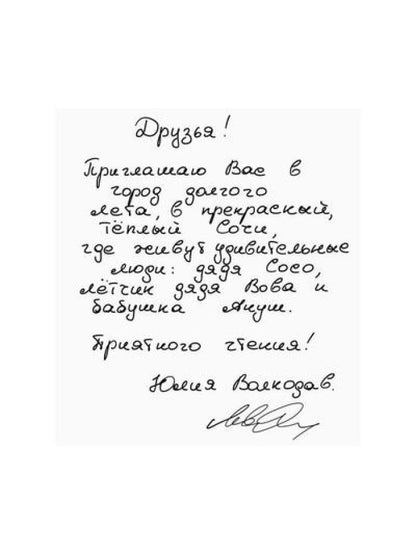 Друзья!
Приглашаю Вас в
город долгого
лета, в прекрасный,
тёплый Сочи,
где живут удивительные
люди: дядя Сосо,
лётчик дядя Вова и
бабушка Ануш.
Приятного чтения!
Юлия Волкодав.